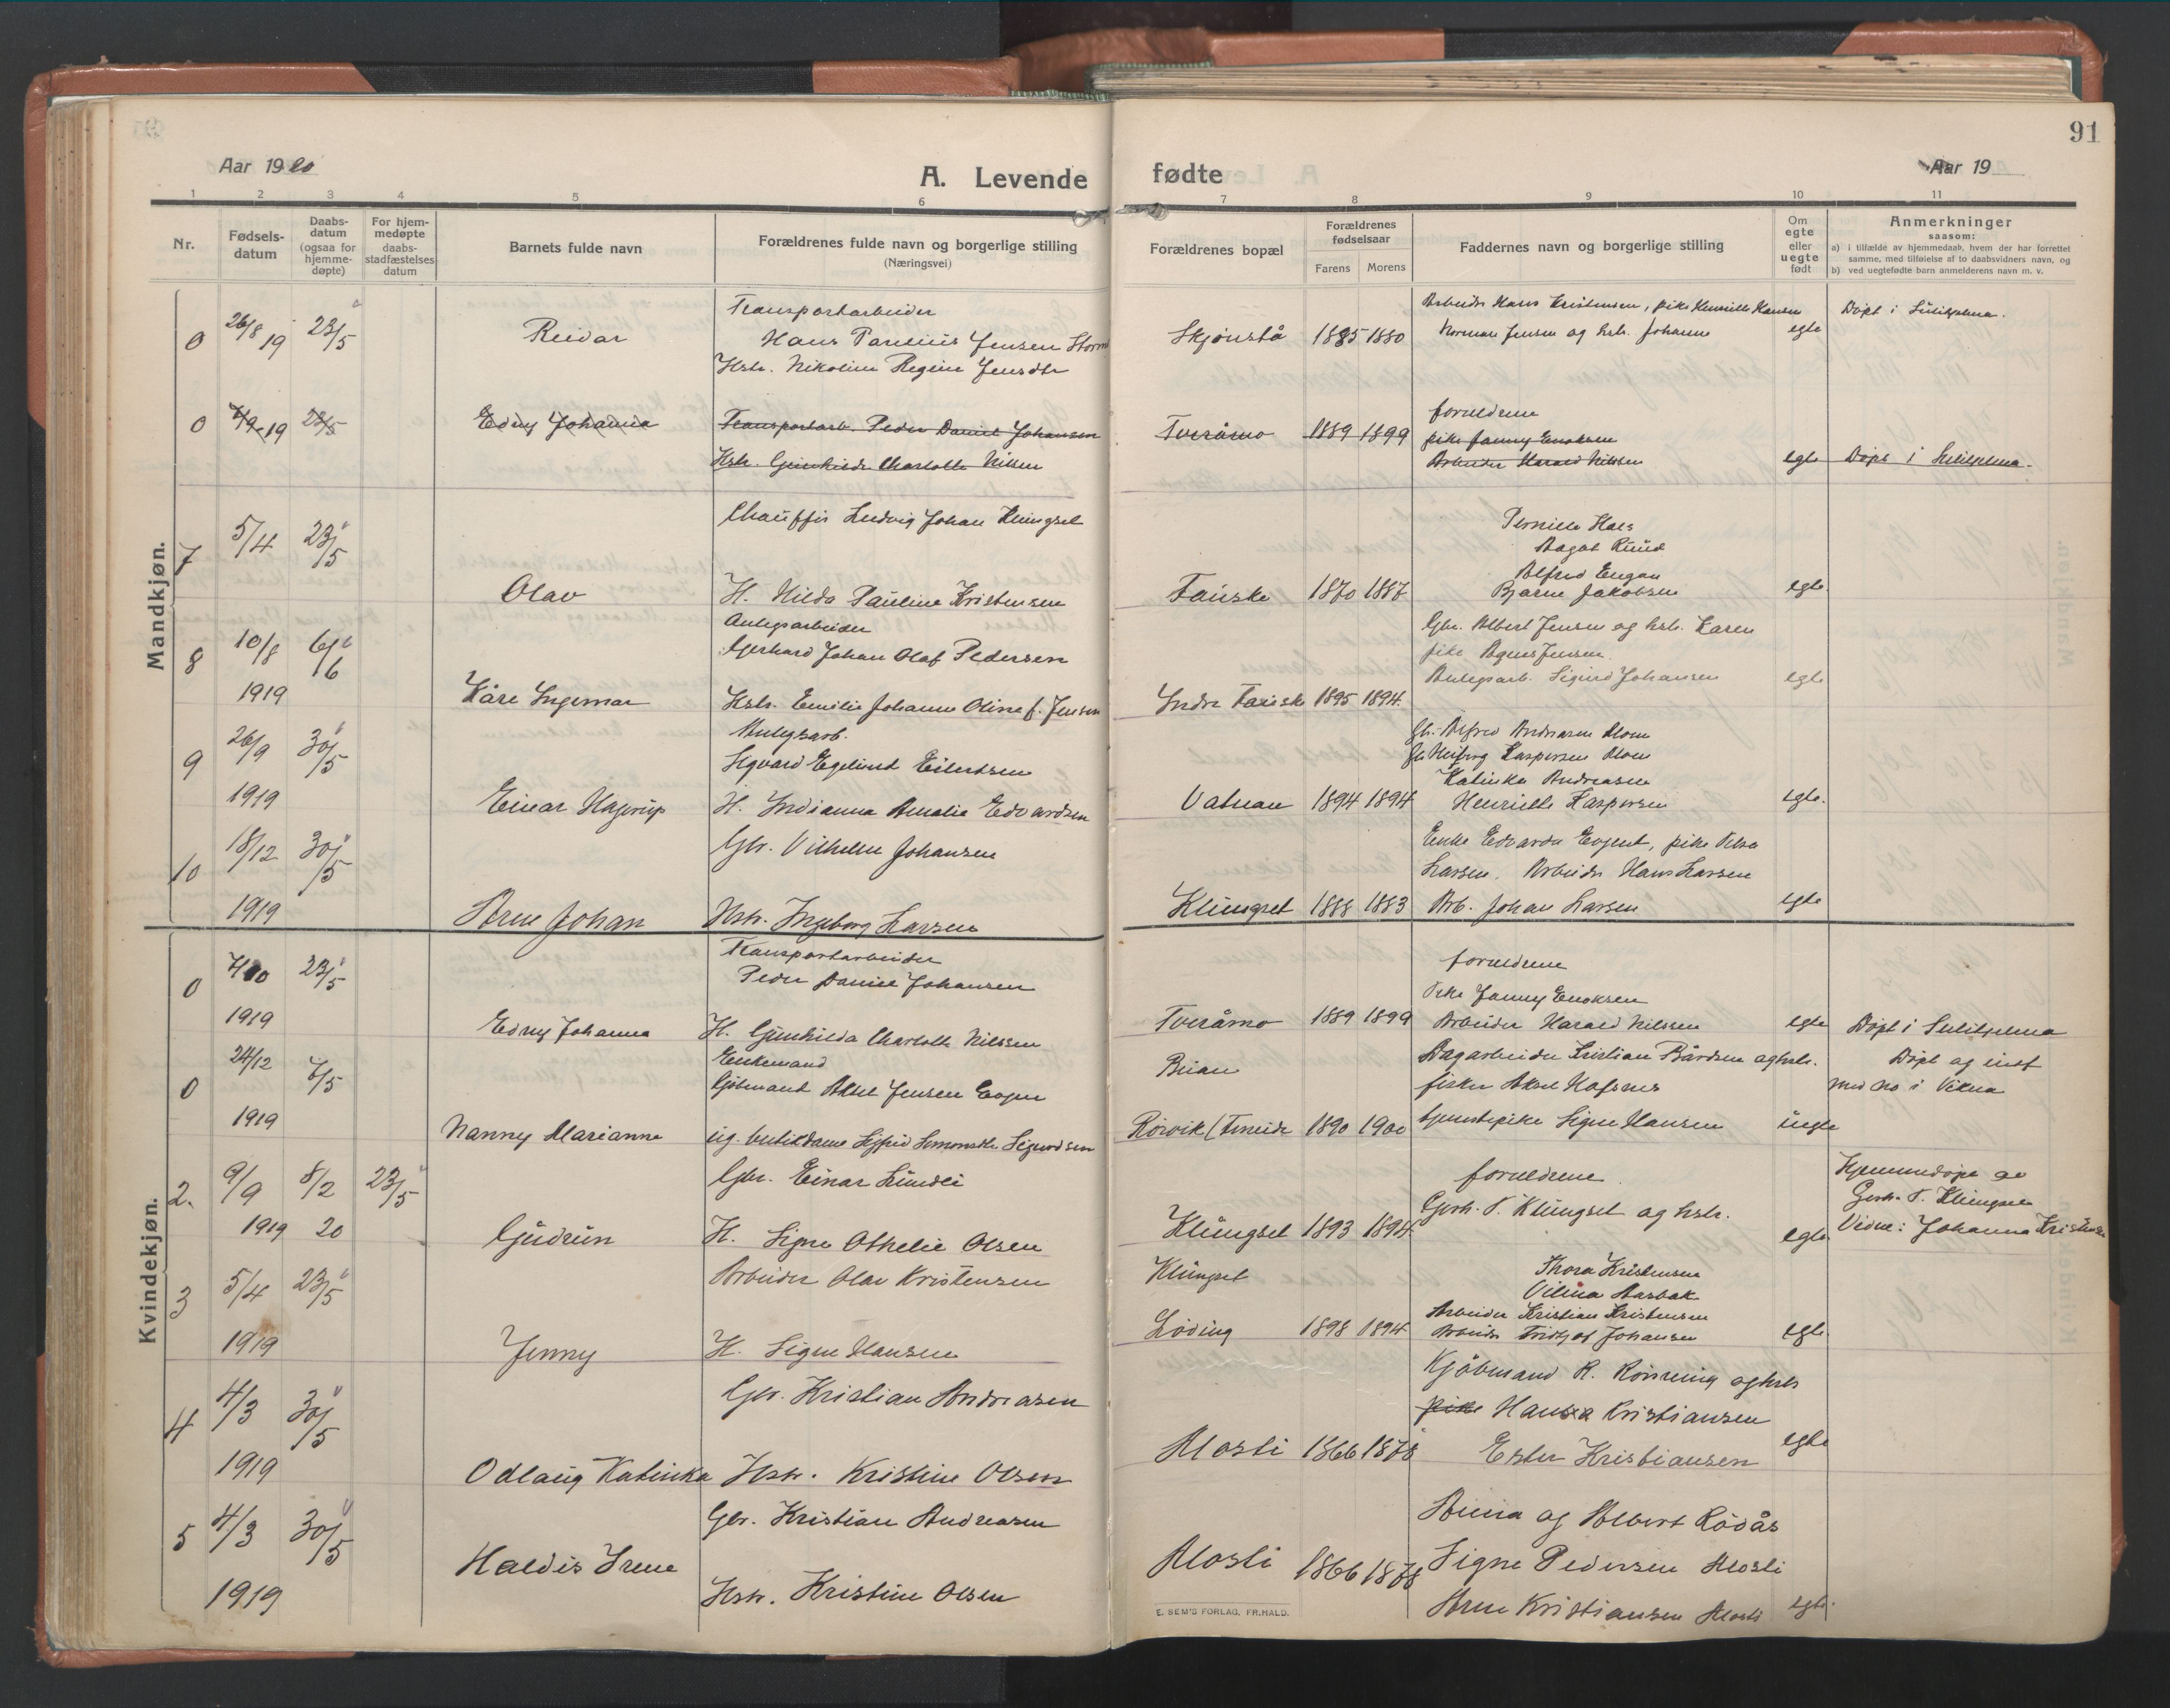 91
Aar 1920
A. Levende
fødte
Aar 19
1 2 3 4 5 6 7 8 9 10 11
Nr.
Fødsels-
datum
Daabs-
datum
(ogsaa for
hjemme-
døpte)
For hjem-
medøpte
daabs-
stadfæstelses
datum
Barnets fulde navn
Forældrenes fulde navn og borgerlige stilling
(Næringsvei)
Forældrenes bopæl
Forældrenes
fødselsaar
Farens Morens
Faddernes navn og borgerlige stilling
Om
egte
eller
uegte
født
Anmerkninger
saasom:
a) i tilfælde av hjemmedaab, hvem der har forrettet
samme, med tilføielse af to daabsvidners navn, og
b) ved uegtefødte barn anmelderens navn m. v.
Mandkjøn.
0 26/8 19 23/5 Reidar
Transportarbeider
Hans Parelius Jensen Storm
Hstr. Nikoline Regine Jensdtr
Skjønstå 1885 1880
Arbeider Hans Kristensen, pike Henriette Hansen
Norman Jensen og hstr. Johanne
egte
Døpt i Sulitjelma.
0 7/9 19 23/5 Edny Johanna
Transportarb. Peder Daniel Johansen
Hstr. Gunhilda Charlotte Nilsen
Tveråmo 1889 1899
forældrene
pike Janny Enoksen
Arbeider Harald Nilsen
egte Døpt i Sulitjelma.
7 5/4 23/5 Olav
Chauffør Ludvig Johan Klungset
H. Hilda Pauline Kristensen
Fauske 1870 1887
Pernille Hals
Aagot Ruud
Alfred Engan
Bjarne Jakobsen
egte
8 10/8 1919 6/6 Kåre Ingemar
Anlegsarbeider
Gerhard Johan Olaf Pedersen
Hstr. Emilie Johanne Oline f. Jensen
Indre Fauske 1895 1894
Gbr. Albert Jensen og hstr. Karen
pike Agnes Jensen
Anlegsarb. Sigurd Johansen
egte
9 26/9 1919 30/5 Einar Hagerup
Anlegsarb.
Sigvard Egelund Eilertsen
H. Indianna Amalie Edvardsen
Vatnan 1894 1894
Gbr. Alfred Andreasen Moen
Katinka Andreasen
Henriette Kaspersen
egte.
10 18/12 1919 30/5 Arne Johan
Gbr. Vilhelm Johansen
Hstr. Ingeborg Larsen
Klungset 1888 1883
Enke Edvarda Evjent, pike
Larsen. Arbeider Hans Larsen
Arb. Johan Larsen
egte
Kvindekjøn.
0 1919 23/5 Edny Johanna
Transportarbeider
Peder Daniel Johansen
H. Gunhilda Charlotte Nilssen
Tveråmo 1889 1899
forældrene
Pike Janny Enoksen
Arbeider Harald Nilssen
egte Døpt i Sulitjelma
0 24/12 1919 /5 Nanny Marianne
Enkemand
Gjømand Jensen
ug. butikdame Sigfrid Simonsdtr. Sigurdsen
Rørvik (Finneid 1890 1900
Dagarbeider Kristian Bårdsen og hstr.
fisker Aksel Hafsnes
tjenestepike Signe Hansen
uegte
Døpt og indf
med no i Vikna
2. 9/9 1919 8/2 20 23/5 Gudrun
Gbr. Einar Lundli
H. Signe Othelie Olsen
Klungset 1893 1894
forældrene
Gerh. P. Klungset og hstr.
egte
Hjemmedøpt av
Gerh. P. Klungset
Vidne: Johanna Kristensen
3 5/4 1919 23/5 Jenny
Arbeider Olav Kristensen
H. Signe Hansen
Klungset
Løding 1898 1894
Thora Kristensen
Vilma Aasbak
Arbeider Kristian Kristensen
Arbeider Fridtjof Johansen
egte
4 4/3 1919 30/5 Odlaug Katinka
Gbr. Kristian Andreasen
Hstr. Kristine Olsen
Mosti 1866 1878
Kjøbmand R. Rønning og hstr
pike Hansea Kristiansen
Ester Kristiansen
egte
5 4/3 1919 30/5 Haldis Irene
Gbr. Kristian Andreasen
Hstr. Kristine Olsen
Mosti 1866 1878
Anna og Albert Rødås
Signe Pedersen Mosti
Arne Kristiansen Mosti
egte.
E. SEM'S FORLAG, FR.HALD.